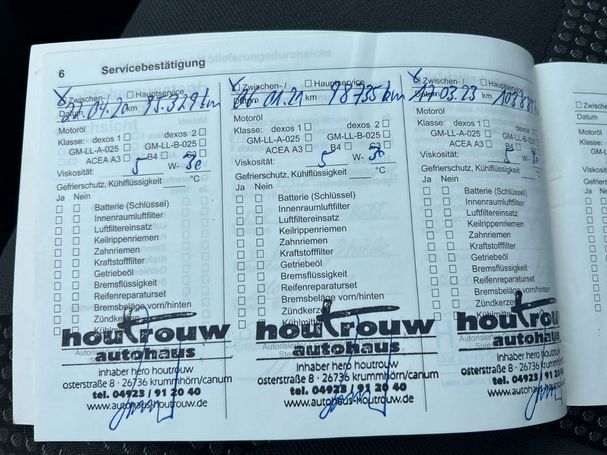 6 Servicebestätigung
Zwischen-/ Hauptservice
Datum 27.04.20 km 95.329 km
Motoröl
Klasse: dexos 1 dexos 2
GM-LL-A-025 GM-LL-B-025
ACEA A3 B4
Viskosität: 5 W- 30
Gefrierschutz, Kühlflüssigkeit °C
Ja Nein
Batterie (Schlüssel)
Innenraumluftfilter
Luftfiltereinsatz
Keilrippenriemen
Zahnriemen
Kraftstofffilter
Getriebeöl
Bremsflüssigkeit
Reifenreparaturset
Bremsbeläge vorn/hinten
Zündkerzen
houtrouw
autohaus
inhaber hero houtrouw
osterstraße 8 · 26736 krummhörn/canum
tel. 04923 / 91 20 40
www.autohaus-houtrouw.de
Zwischen-/ Hauptservice
Datum 01.21 km 98735 km
Motoröl
Klasse: dexos 1 dexos 2
GM-LL-A-025 GM-LL-B-025
ACEA A3 B4
Viskosität: 5 W- 30
Gefrierschutz, Kühlflüssigkeit °C
Ja Nein
Batterie (Schlüssel)
Innenraumluftfilter
Luftfiltereinsatz
Keilrippenriemen
Zahnriemen
Kraftstofffilter
Getriebeöl
Bremsflüssigkeit
Reifenreparaturset
Bremsbeläge vorn/hinten
Zündkerzen
houtrouw
autohaus
inhaber hero houtrouw
osterstraße 8 · 26736 krummhörn/canum
tel. 04923 / 91 20 40
www.autohaus-houtrouw.de
Zwischen-/ Hauptservice
Datum 27.03.23 km
Motoröl
Klasse: dexos 1 dexos 2
GM-LL-A-025 GM-LL-B-025
ACEA A3 B4
Viskosität: 5 W- 30
Gefrierschutz, Kühlflüssigkeit °C
Ja Nein
Batterie (Schlüssel)
Innenraumluftfilter
Luftfiltereinsatz
Keilrippenriemen
Zahnriemen
Kraftstofffilter
Getriebeöl
Bremsflüssigkeit
Reifenreparaturset
Bremsbeläge vorn/hinten
Zündkerzen
autohaus
inhaber hero houtrouw
osterstraße 8 · 26736 krummhörn
tel. 04923 / 91 20
Zwischen-/
Datum
Motoröl
Klasse:
Viskosität:
Gefrierschutz
Ja Nein